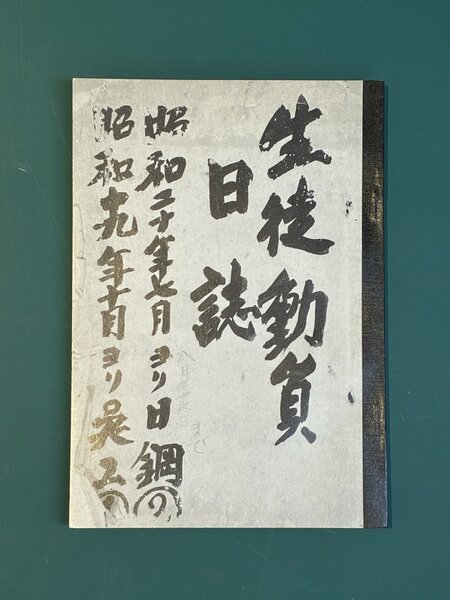 生徒動員
日誌
昭和二十年七月ヨリ日鋼(の)
昭和十九年十月ヨリ呉工(の)